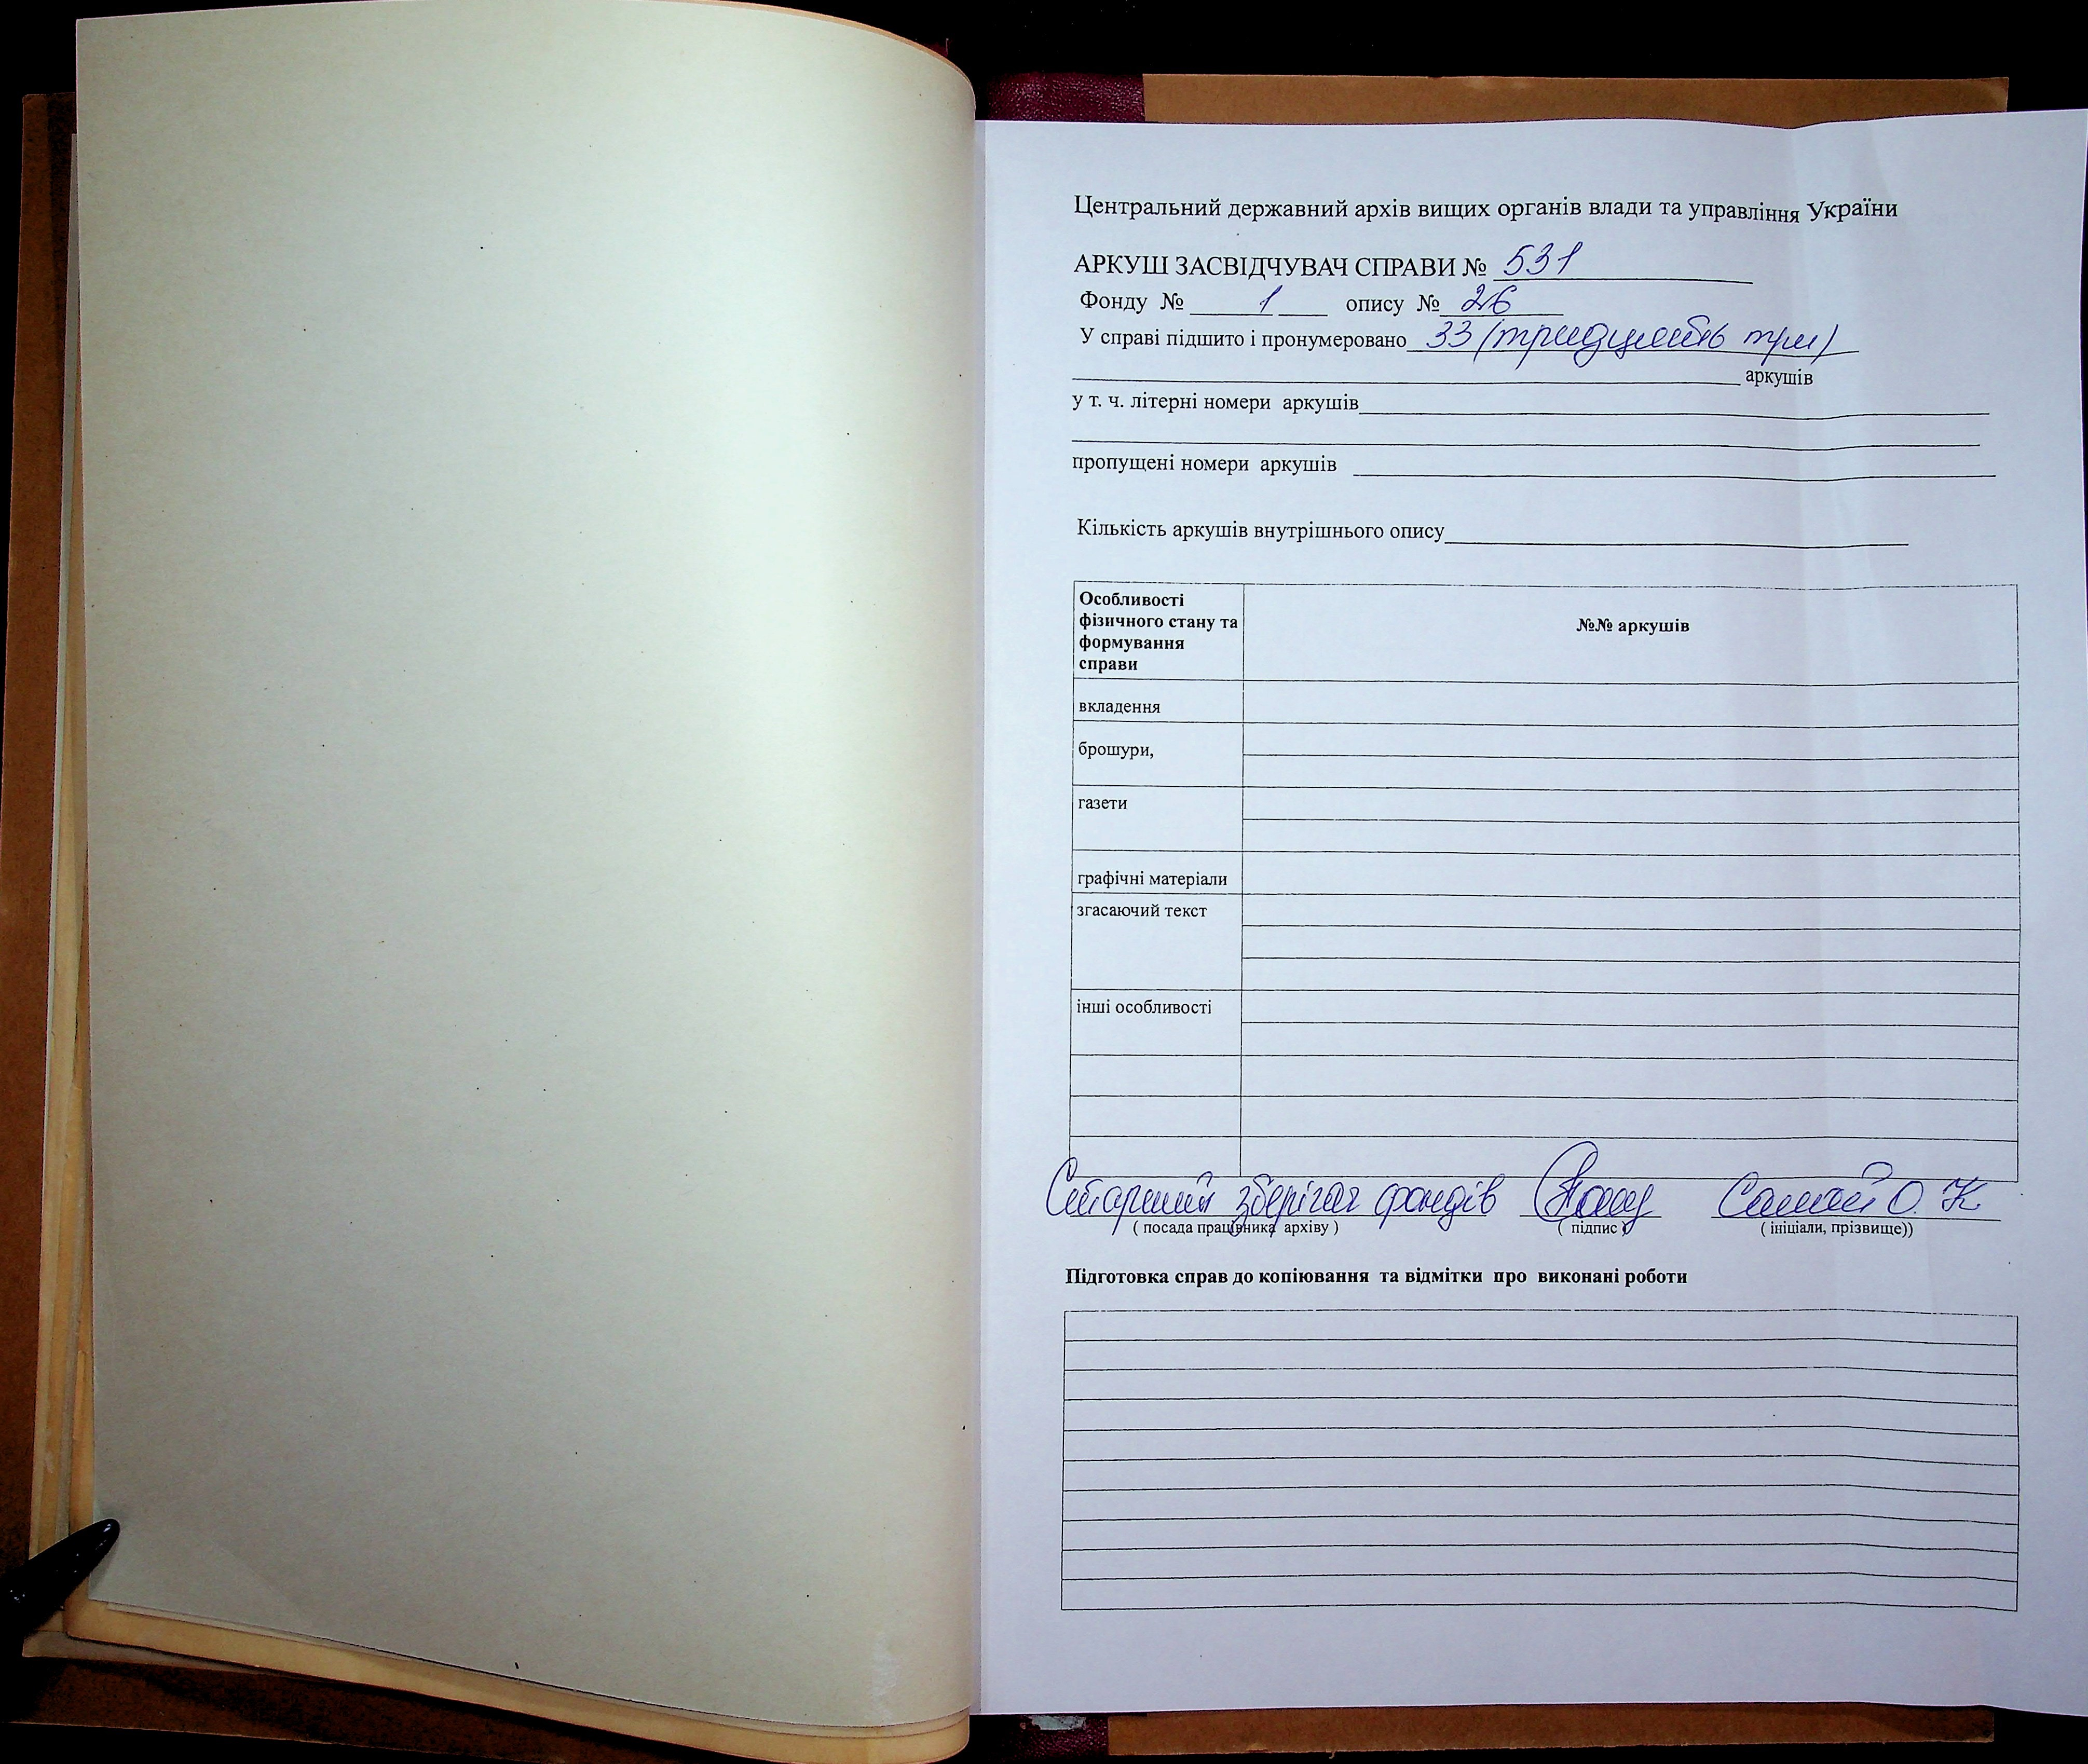 Центральний державний архів вищих органів влади та управління України
АРКУШ ЗАСВІДЧУВАЧ СПРАВИ № 531
Фонду № 1 опису № 26
У справі підшито і пронумеровано 33 (тридцять три)
аркушів
у т. ч. літерні номери аркушів
пропущені номери аркушів
Кількість аркушів внутрішнього опису
Особливості
фізичного стану та
формування
справи
№№ аркушів
вкладення
брошури,
газети
графічні матеріали
згасаючий текст
інші особливості
Старший зберігач фондів О. К
( посада працівника архіву ) ( підпис ) ( ініціали, прізвище))
Підготовка справ до копіювання та відмітки про виконані роботи